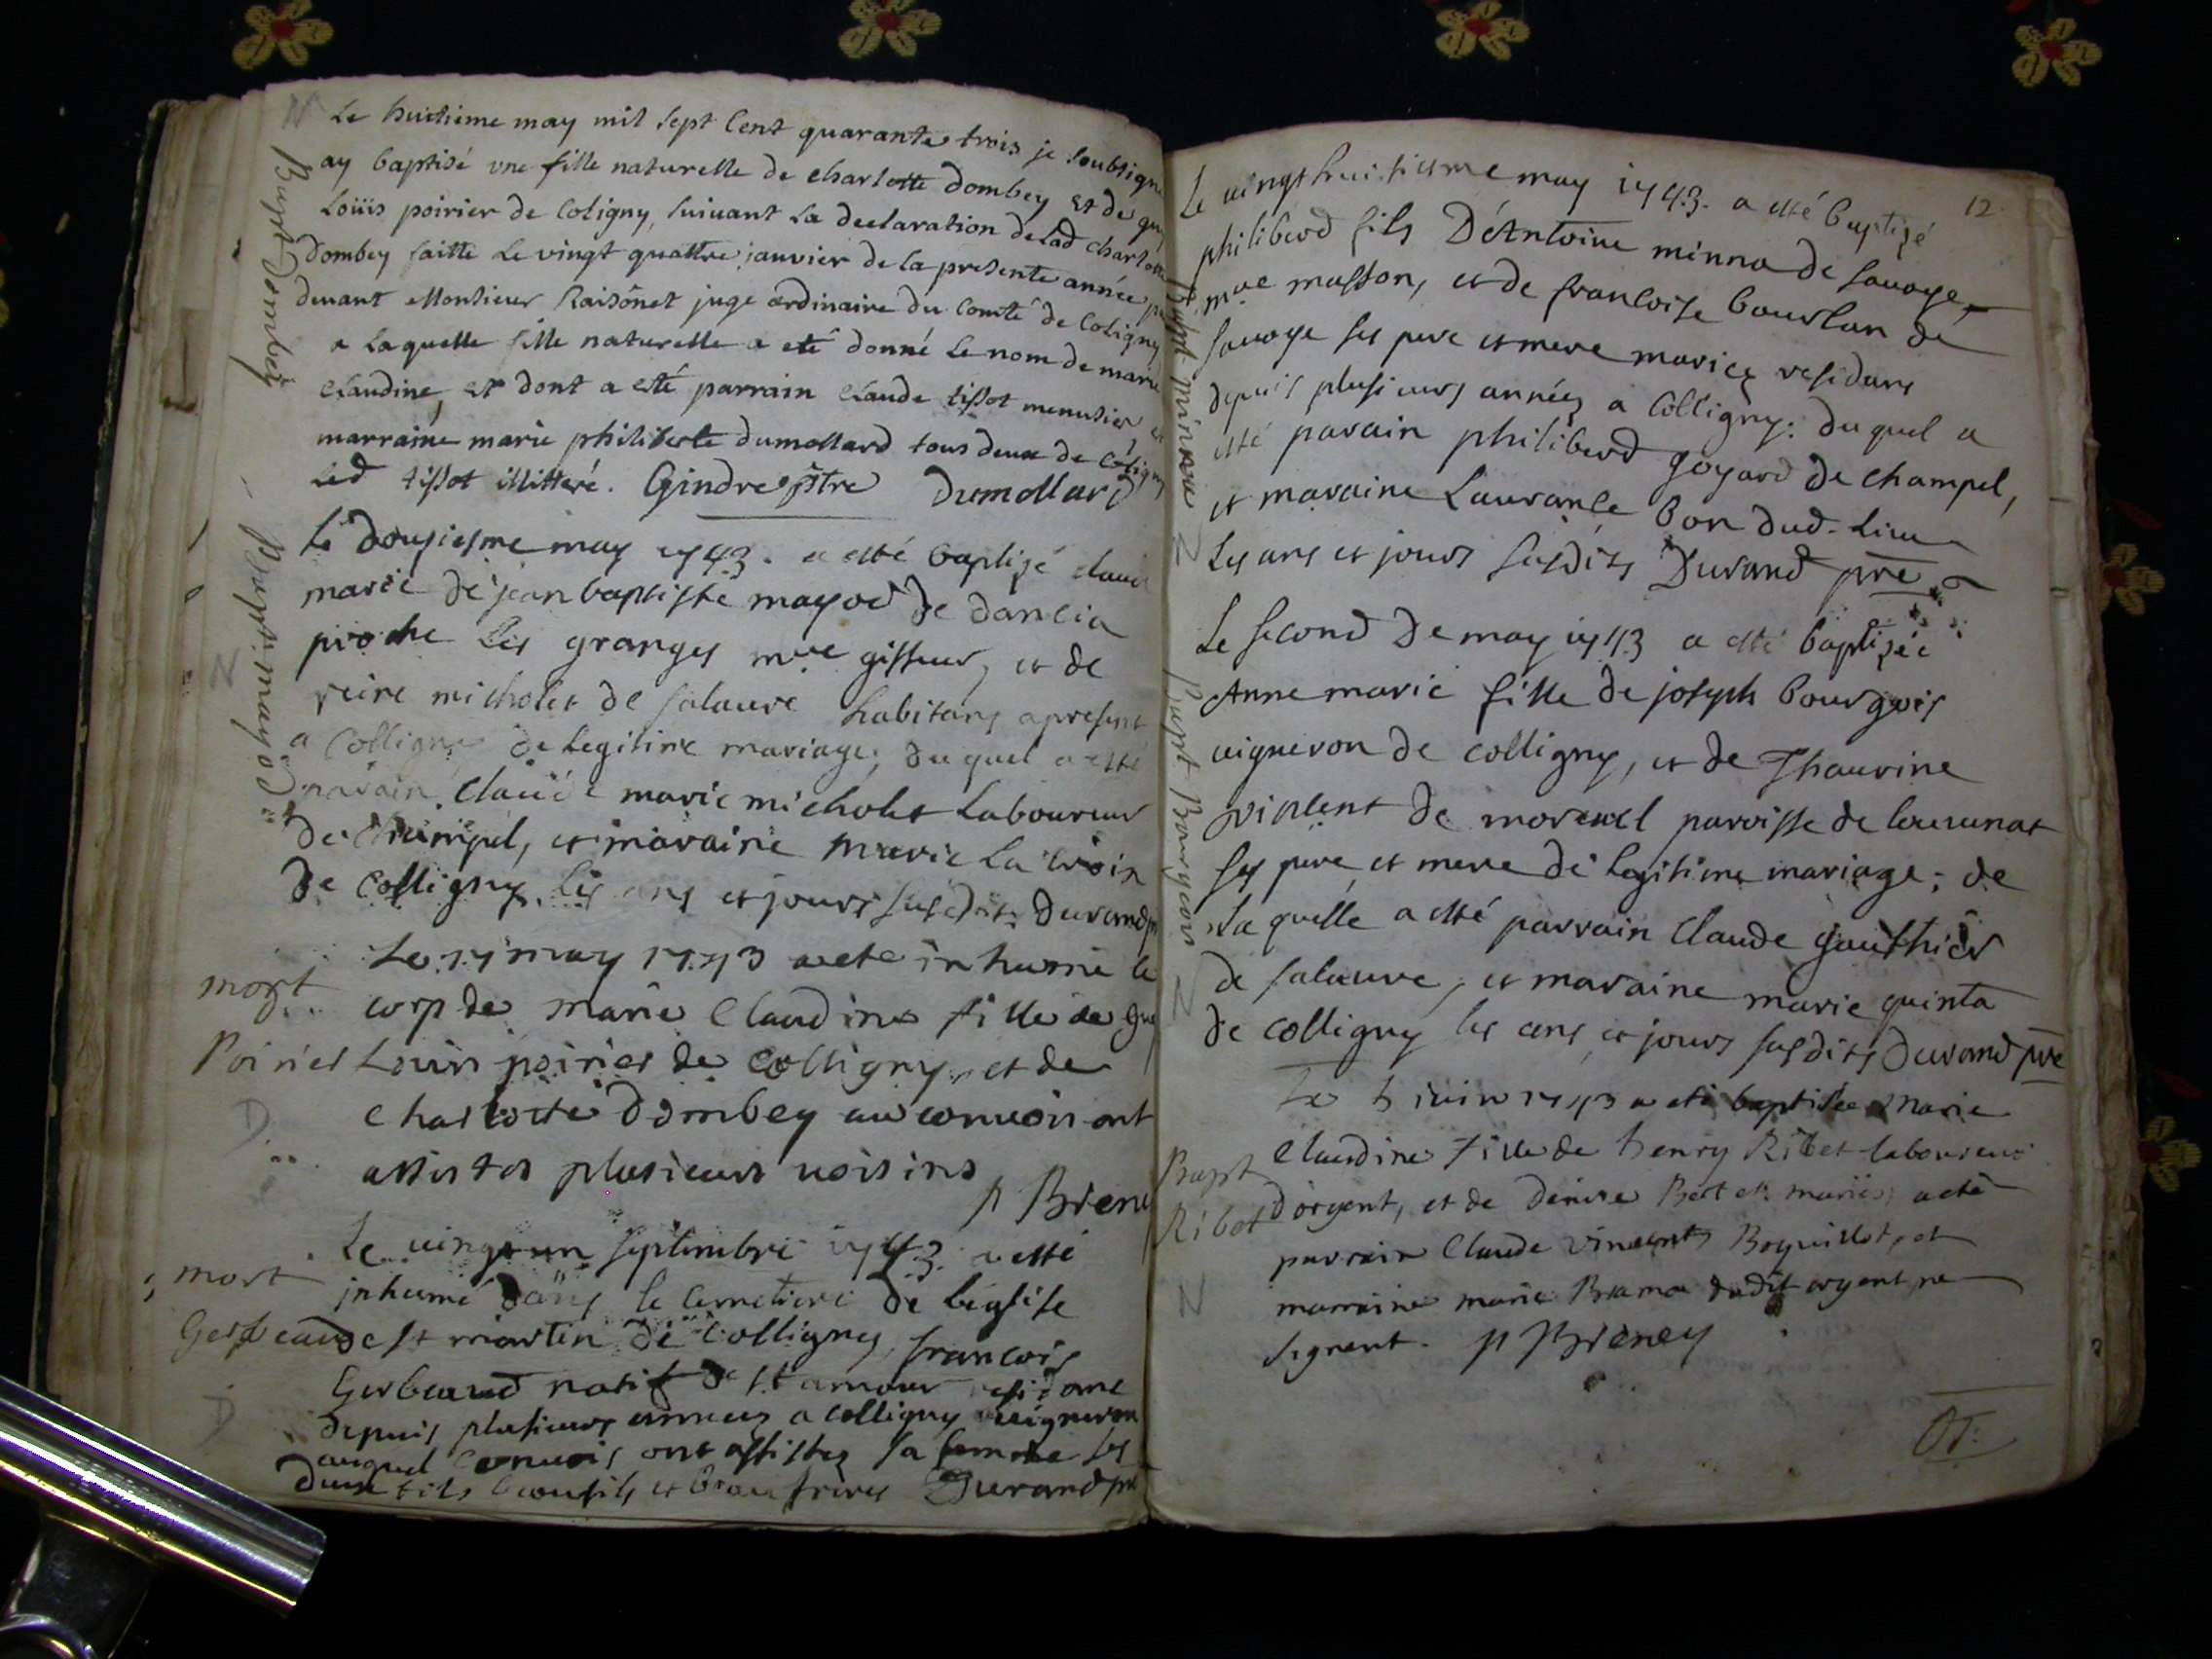 N Le huitieme may mil sept cent quarante trois je soubsigné
ay baptisé une fille naturelle de charlotte Dombey et de
Loüis poirier de Coligny, suivant la declaration de lad charlotte
Dombey faitte le vingt quattre janvier de la presente année
devant Monsieur Raisônet juge ordinaire du Comté de Coligny
a laquelle fille naturelle a eté donné le nom de marie
claudine, et dont a esté parrain claude tissot menusier et
marraine marie philiberte dumollard tous deux de Coligny
led tissot illitteré. Gindre ptre Dumollard
Bapt Dombey
Le dousiesme may 1743. a esté baptizé claude
marie de jean baptiste mayod de dancia
proche les granges mre gisseur, et de
reine micholet de salavre habitans apresent
a Colligny de legitime mariage; duquel a esté
parain Claude marie micholet laboureur
de Champel, et maraine marie la croix
de Colligny. les ans et jours susdits Durand
N
mort
Poirier
D
Le 17 may 1743 a ete inhumé le
corp de marie Claudine fille de
Louis poirier de Colligny, et de
Charlotte Dombey au convois ont
assistes plusieurs voisins
p Breney
mort
Gerbeaud
D
Le vingt un septembre 1743. a esté
inhumé dans le cemetiere de léglise
st martin de Colligny, francois
Gerbeaud natif de st amour residant
depuis plusieurs années a colligny vigneron
auquel convois ont assistez sa femme ses
deux fils beaufils et beaufreres Durand pre
12
Le vingt huitiesme may 1743. a esté baptizé
philiberd fils D'Antoine minna de savoye,
mre masson, et de francoise bourlan de
savoye ses pere et mere mariez residans
depuis plusieurs années a Colligny: duquel a
esté parain philiberd goyard de champel,
et maraine Laurance bon dud. lieu
Les ans et jours susdits Durand pre
Bapt minna
N
Le second de may 1743 a esté baptizée
Anne marie fille de joseph bourgois
vigneron de colligny, et de Thaurine
vinlent de morewel paroisse de louvenat
ses pere et mere de legitime mariage; de
la quelle a esté parrain Claude gauthier
de salavre, et maraine marie quinta
de colligny les ans et jours susdits Durand pre
Bapt Bourgeois
N
Bapt
Ribet
N
Le 5 iuin 1743 a eté baptisée Marie
Claudine fille de henry Ribet laboureur
d'orgent, et de denise Bert et mariés, a eté
parrain Claude vincent Boguillot, et
marraine marie Brama dudit orgent ne
signent. p Breney